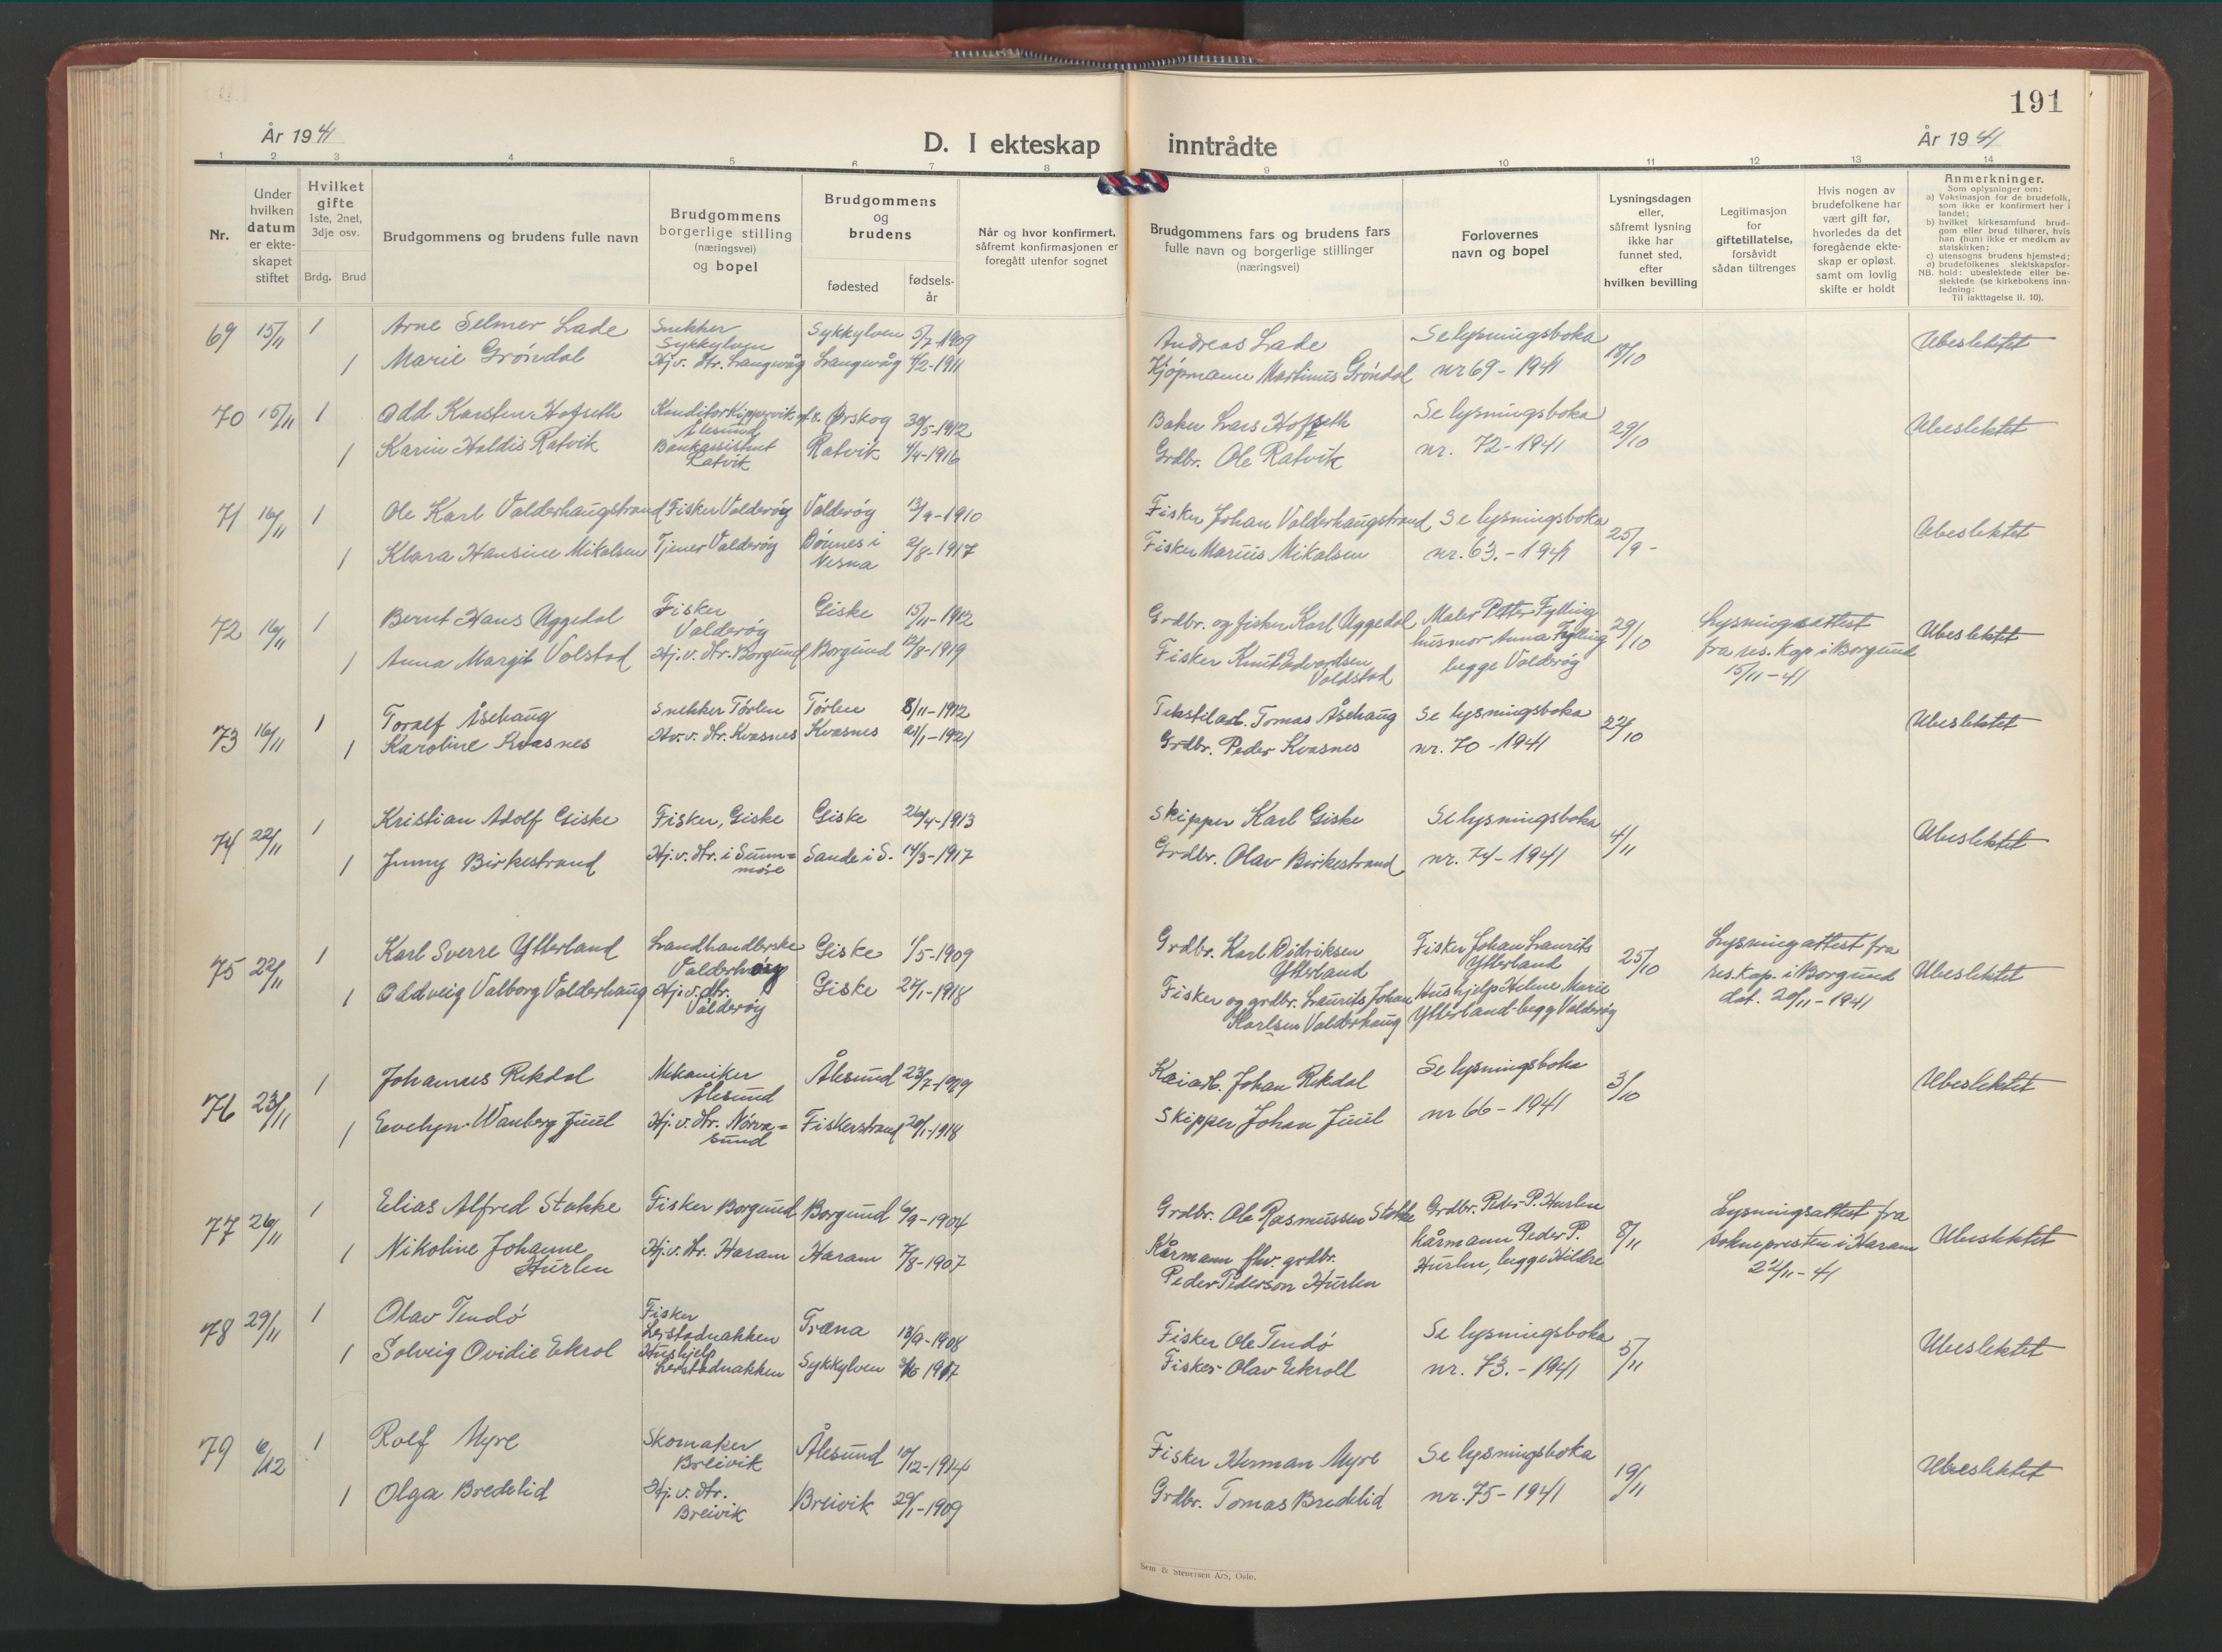 191
År 1941
D. I ekteskap inntrådte
År 1941
1 2 3 4 5 6 7 8 9 10 11 12 13 14
Nr.
Under hvilken datum er ekteskapet stiftet
Hvilket gifte
1ste, 2net, 3dje osv.
Brdg. Brud
Brudgommens og brudens fulle navn
Brudgommens borgerlige stilling (næringsvei) og bopel
Brudgommens og brudens
fødested
fødselsår
Når og hvor konfirmert, såfremt konfirmasjonen er foregått utenfor sognet
Brudgommens fars og brudens fars fulle navn og borgerlige stillinger (næringsvei)
Forlovernes navn og bopel
Lysningsdagen eller, såfremt lysning ikke har funnet sted, efter hvilken bevilling
Legitimasjon for giftetillatelse, forsåvidt sådan tiltrenges
Hvis nogen av brudefolkene har vært gift før, hvorledes da det foregående ekteskap er opløst. samt om lovlig skifte er holdt
Anmerkninger.
Som oplysninger om:
a) Vaksinasjon for de brudefolk, som ikke er konfirmert her i landet;
b) hvilket kirkesamfund brudgom eller brud tilhører, hvis han (hun) ikke er medlem av statskirken;
c) utensogns brudens hjemsted;
d) brudefolkenes slektskapsforhold: ubeslektede eller beslektede (se kirkebokens innledning:
NB.
Til iakttagelse II. 10).
69 15/11 1 Arne Selmer Lade Snekker Sykkylven Sykkylven 5/7-1909 Andreas Lade Se lysningsboka 18/10 Ubeslektet
1 Marie Gröndal Hj.v. str. Langevåg Langevåg 4/2-1911 Kjöpmann Martinus Gröndal nr 69-1941
70 15/11 1 Odd Karsten Hofseth Konditor Kippervik Ålesund Ørskog 30/5-1912 Baker Lars Hofseth Se lysningsboka 29/10 Ubeslektet
1 Karin Haldis Ratvik Bankassistent Ratvik Ratvik 4/4-1916 Grdbr. Ole Ratvik nr. 72-1941
71 16/11 1 Ole Karl Valderhaugstrand Fisker Valderöy Valderöy 13/9-1910 Fisker Johan Valderhaugstrand Se lysningsboka 25/9- Ubeslektet
1 Klara Hansine Mikalsen Tjener Valderöy Dönnes i Nesna 2/8-1917 Fisker Marius Mikalsen nr. 63.-1941
72 16/11 1 Bernt Hans Uggedal Fisker Valderöy Giske 15/11-1912 Grdbr. og fisker Karl Uggedal Maler Petter Fylling 29/10 Lysningsattest Ubeslektet
1 Anna Margit Volstad Hj.v. str. Borgund Borgund 12/8-1919 Fisker Knut Edvardsen Voldstad husmor Anna Fylling begge Valderöy fra res. kap. i Borgund 15/11-41
73 16/11 1 Toralf Åsehaug Snekker Törlen Törlen 8/11-1912 Tekstilarb. Tomas Åsehaug Se lysningsboka 22/10 Ubeslektet
1 Karoline Kvasnes Hv.v. str. Kvasnes Kvasnes 21/1-1921 Grdbr. Peder Kvasnes nr. 70-1941
74 22/11 1 Kristian Adolf Giske Fisker, Giske Giske 26/4-1913 Skipper Karl Giske Se lysningsboka 4/11 Ubeslektet
1 Jenny Birkestrand Hj.v. str. i Sunnmöre Sande i S. 14/3-1917 Grdbr. Olav Birkestrand nr. 74-1941
75 22/11 1 Karl Sverre Ytterland Landhandler Valderöy Giske 1/5-1909 Grdbr. Karl Didriksen Ytterland Fisker Johan Laurits Ytterland 25/10 Lysningattest fra Ubeslektet
1 Oddveig Valborg Valderhaug Hj.v. str. Valderöy Giske 27/1-1918 Fisker og grdbr. Laurits Johan Karlsen Valderhaug Hushjelp Helene Marie Ytterland-begge Valderöy res. kap. i Borgund dat. 20/11-1941
76 23/11 1 Johannes Rekdal Mekaniker Ålesund Ålesund 23/7-1919 Kaiarb. Johan Rekdal Se lysningsboka 3/10 Ubeslektet
1 Evelyn Wanberg Juul Hj.v. str. Nörvasund Fiskerstrand 20/1-1918 Skipper Johan Juul nr 66-1941
77 26/11 1 Elias Alfred Stokke Fisker Borgund Borgund 6/9-1904 Grdbr. Ole Rasmussen Stokke Grdbr. Peder P. Hurlen 8/11 Lysningsattest fra Ubeslektet
1 Nikoline Johanne Hurlen Hj.v. str. Haram Haram 7/8-1907 Kårmann fhv. grdbr. Peder Pederson Hurlen kårmann Peder P. Hurlen, begge Hildre soknepresten i Haram 22/11-41
78 29/11 1 Olav Tendö Fisker Lerstadnakken Træna 13/9-1908 Fisker Ole Tendö Se lysningsboka 5/11 Ubeslektet
1 Solveig Ovidie Ekrol Hushjelp Lerstadnakken Sykkylven 1917 Fisker Olav Ekroll nr. 73.-1941
79 6/12 1 Rolf Myre Skomaker Breivik Ålesund 10/12-1914 Fisker Herman Myre Se lysningsboka 19/11 Ubeslektet
1 Olga Bredelid Hj.v. str. Breivik Breivik 29/1-1909 Grdbr. Tomas Bredelid nr. 75-1941
Sem & Stenersen A/S, Oslo.